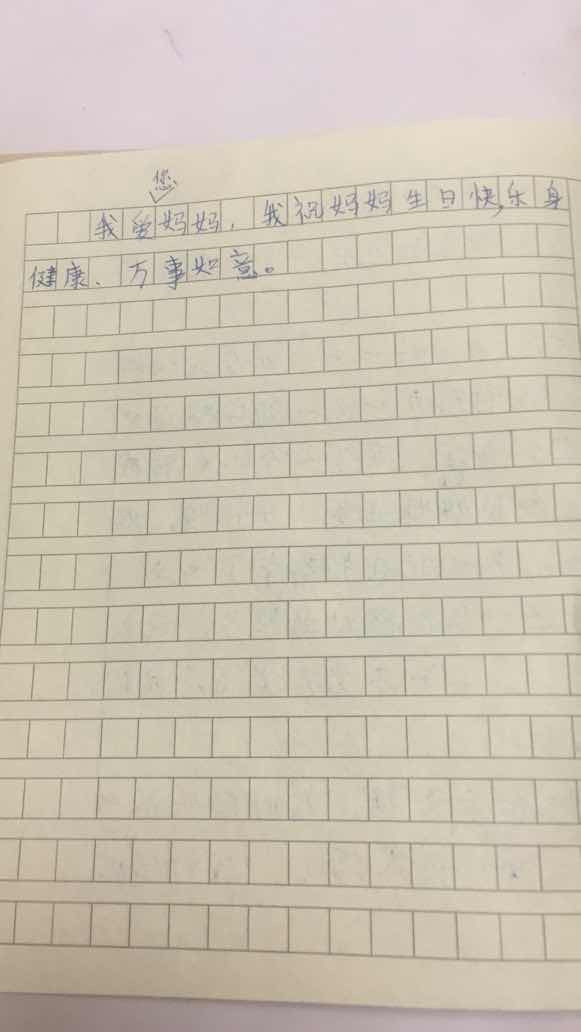 您
我爱妈妈，我祝妈妈生日快乐，身
健康、万事如意。